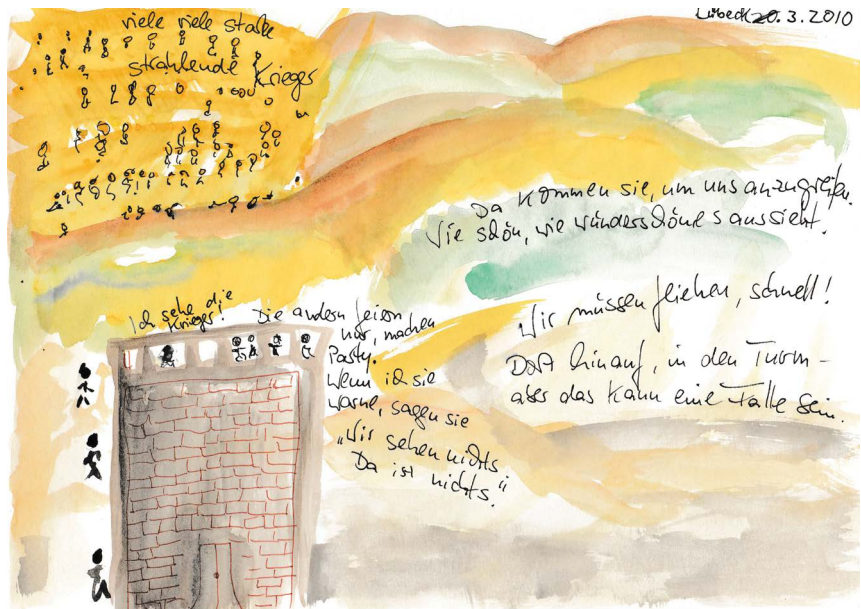 Lübeck 20.3.2010
viele viele starke
strahlende Krieger
Da kommen sie, um uns anzugreifen.
Wie schön, wie wunderschön es aussieht.
Wir müssen fliehen, schnell!
Dort hinauf, in den Turm –
aber das kann eine Falle sein.
Ich sehe die
Krieger!
Die andern feiern
nur, machen
Party.
Wenn ich sie
warne, sagen sie
„Wir sehen nichts
Da ist nichts."